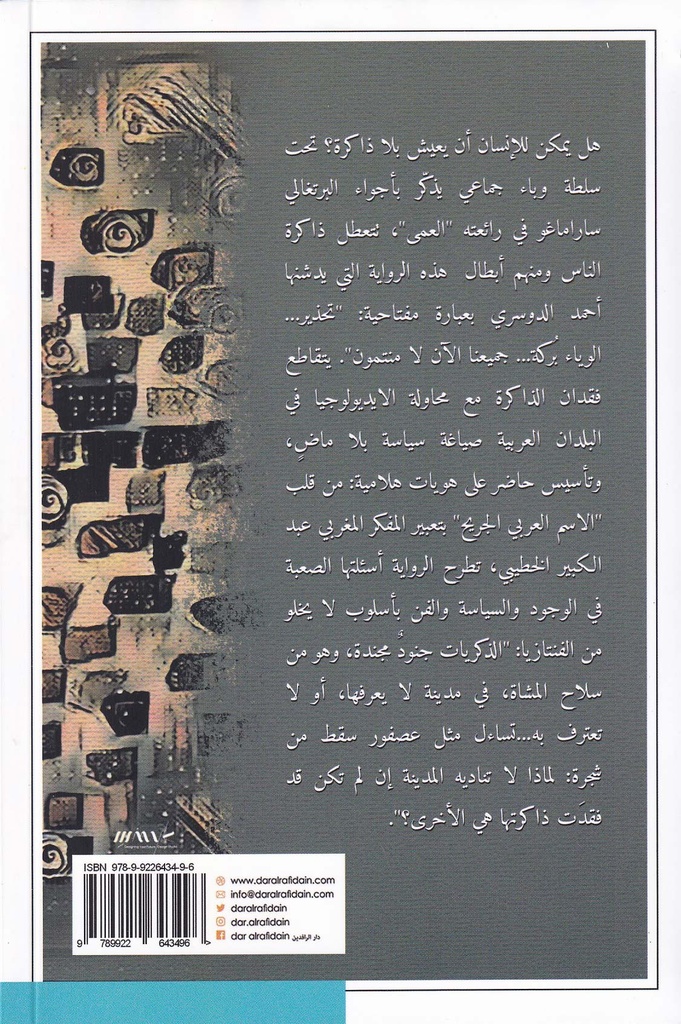 هل يمكن للإنسان أن يعيش بلا ذاكرة؟ تحت
سلطة وباء جماعي يذكّر بأجواء البرتغالي
ساراماغو في رائعته "العمى"، تتعطل ذاكرة
الناس ومنهم أبطال هذه الرواية التي يدشنها
أحمد الدوسري بعبارة مفتاحية: "تحذير...
الوباء بُركة... جميعنا الآن لا منتمون". يتقاطع
فقدان الذاكرة مع محاولة الايديولوجيا في
البلدان العربية صياغة سياسة بلا ماضٍ،
وتأسيس حاضر على هويات هلامية: من قلب
"الاسم العربي الجريح" بتعبير المفكر المغربي عبد
الكبير الخطيبي، تطرح الرواية أسئلتها الصعبة
في الوجود والسياسة والفن بأسلوب لا يخلو
من الفنتازيا: "الذكريات جنودٌ مجندة، وهو من
سلاح المشاة، في مدينة لا يعرفها، أو لا
تعترف به...تساءل مثل عصفور سقط من
شجرة: لماذا لا تناديه المدينة إن لم تكن قد
فقدَت ذاكرتها هي الأخرى؟".
ISBN 978-9-9226434-9-6
9 789922 643496 >
www.daralrafidain.com
info@daralrafidain.com
daralrafidain
dar.alrafidain
dar alrafidain دار الرافدين